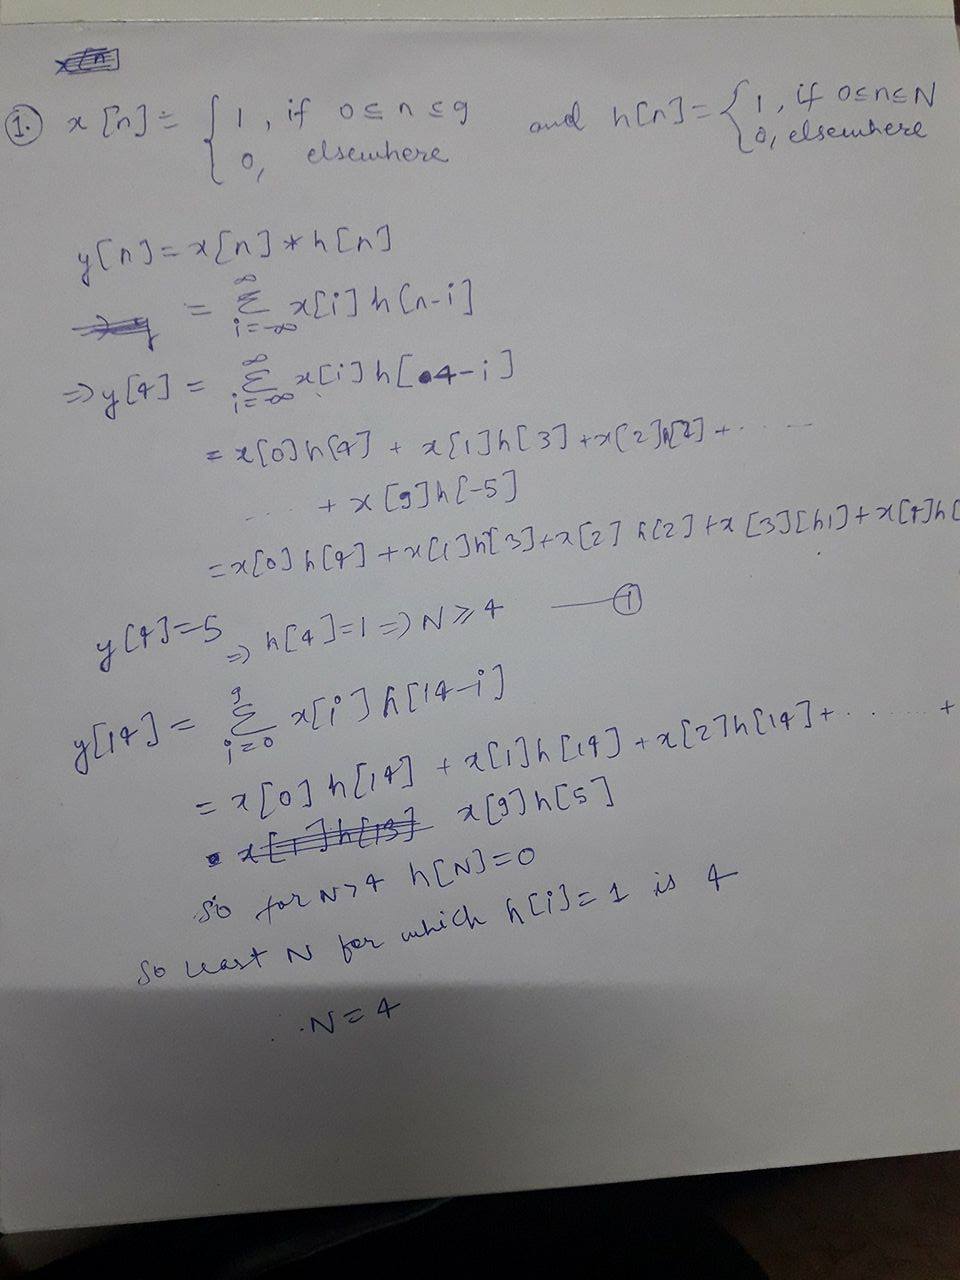 x[n]
1. x[n] = { 1, if 0 ≤ n ≤ 9 and h[n] = { 1, if 0 ≤ n ≤ N
0, elsewhere 0, elsewhere
y[n] = x[n] * h[n]
= ∞ Σ i=-∞ x[i] h[n-i]
⇒ y[4] = ∞ Σ i=-∞ x[i] h[4-i]
= x[0]h[4] + x[1]h[3] + x[2]h[2] + ......
.... + x[9]h[-5]
= x[0]h[4] + x[1]h[3] + x[2] h[2] + x[3][h1] + x[4]h[
y[4]=5 ⇒ h[4]=1 ⇒ N ≥ 4 — 1
y[14] = 9 Σ i=0 x[i] h[14-i]
= x[0] h[14] + x[1]h[14] + x[2]h[14] + ........ +
x[1]h[13] x[9]h[5]
so for N>4 h[N]=0
so least N for which h[i]=1 is 4
N=4